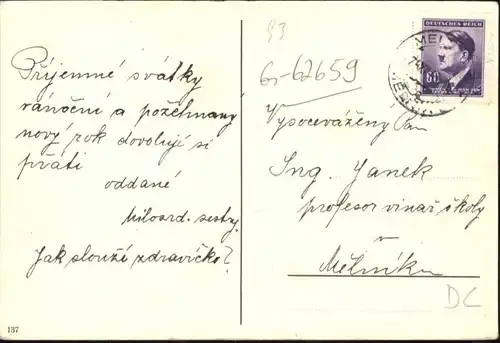 Příjemné svátky
vánoční a požehnaný
nový rok dovolují si
přáti
oddané
Milosrd. sestry.
Jak slouží zdravíčko?
137
93
Gr-62659
DEUTSCHES REICH
60
Vysocevážený Pan
Ing. Vanek
profesor vinař školy
v
Mělníku
DC